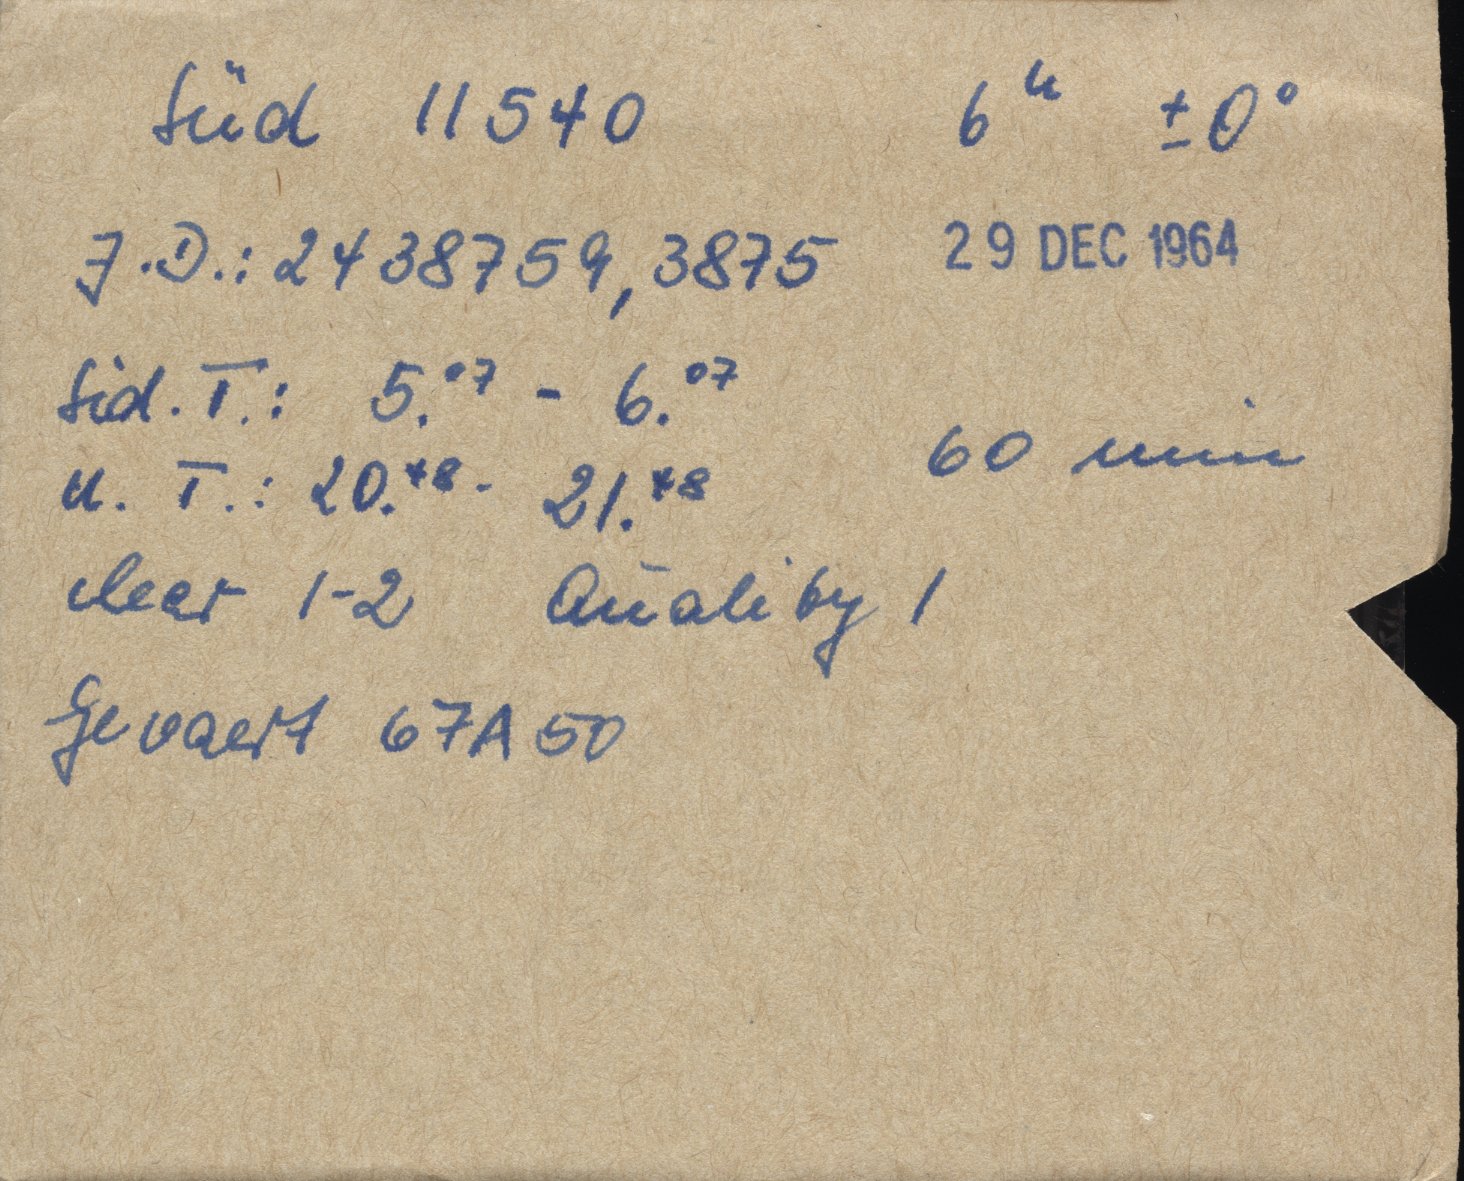 Süd 11540 6ʰ ±0°
J.D.: 2438759,3875 29 DEC 1964
Sid. T.: 5.⁰⁷ - 6.⁰⁷
U. T.: 20.⁴⁸ - 21.⁴⁸ 60 min
clear 1-2 Quality 1
Gevaert 67A50